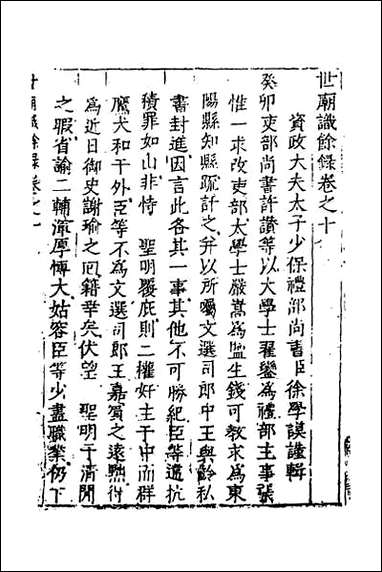 世廟識餘錄卷之十
資政大夫太子少保禮部尚書臣徐學謨謹輯
癸卯吏部尚書許讚等以大學士翟鑾為禮部主事張
惟一求改吏部大學士嚴嵩為監生錢可教求為東
陽縣知縣疏訐之并以所囑文選司郎中王與齡私
書封進因言此各其一事其他不可勝紀臣等違抗
積罪如山非恃 聖明覆庇則二權奸主于中而群
鷹犬和于外臣等不為文選司郎王嘉賓之遠黜行
為近日御史謝瑜之囘籍幸矣伏望 聖明于清閒
之暇省諭二輔流厚愽大姑容臣等少盡職業仍下